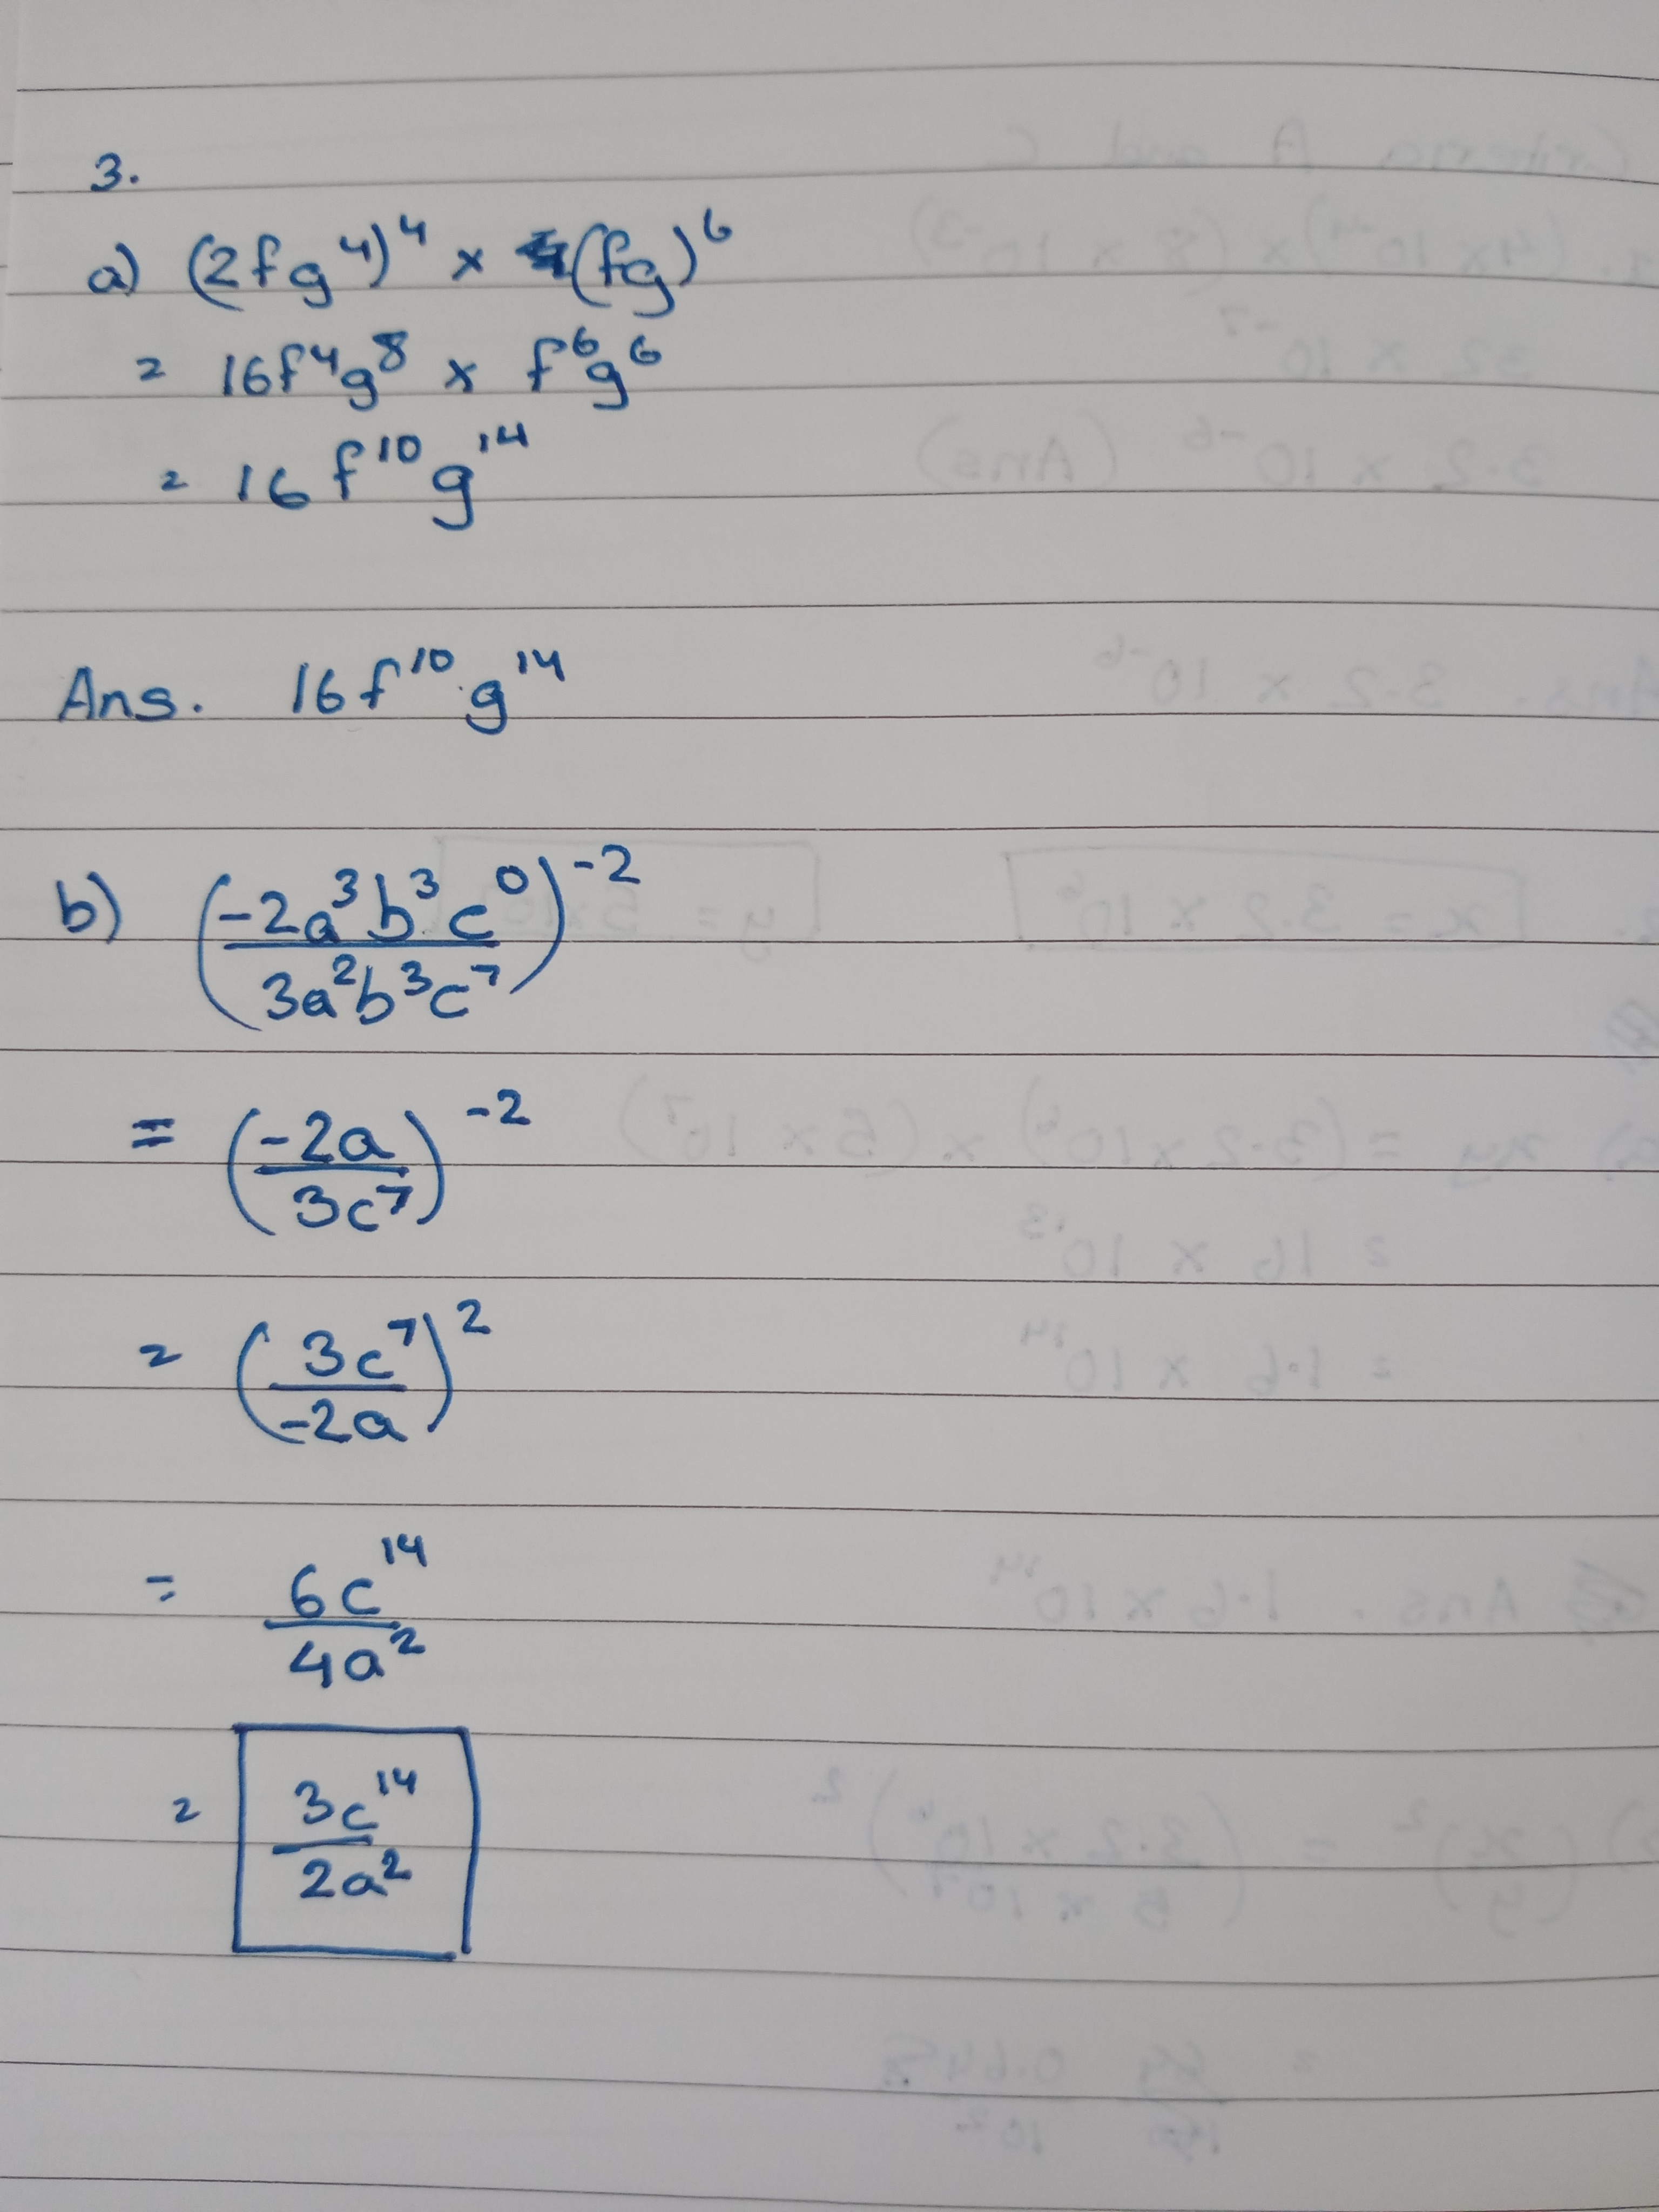 3.
a) (2fg⁴)⁴ × (fg)⁶
= 16f⁴g⁸ × f⁶g⁶
= 16f¹⁰g¹⁴
Ans. 16f¹⁰g¹⁴
b) (-2a³b³c⁰ / 3a²b³c⁷)⁻²
= (-2a / 3c⁷)⁻²
= (3c⁷ / -2a)²
= 6c¹⁴ / 4a²
= 3c¹⁴ / 2a²